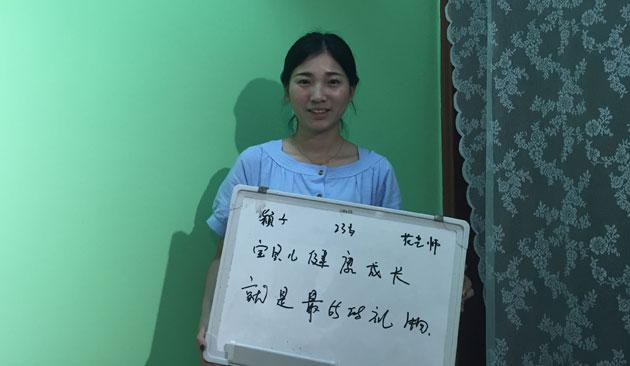 颖子 23岁 花艺师
宝贝儿健康成长
就是最好的礼物.